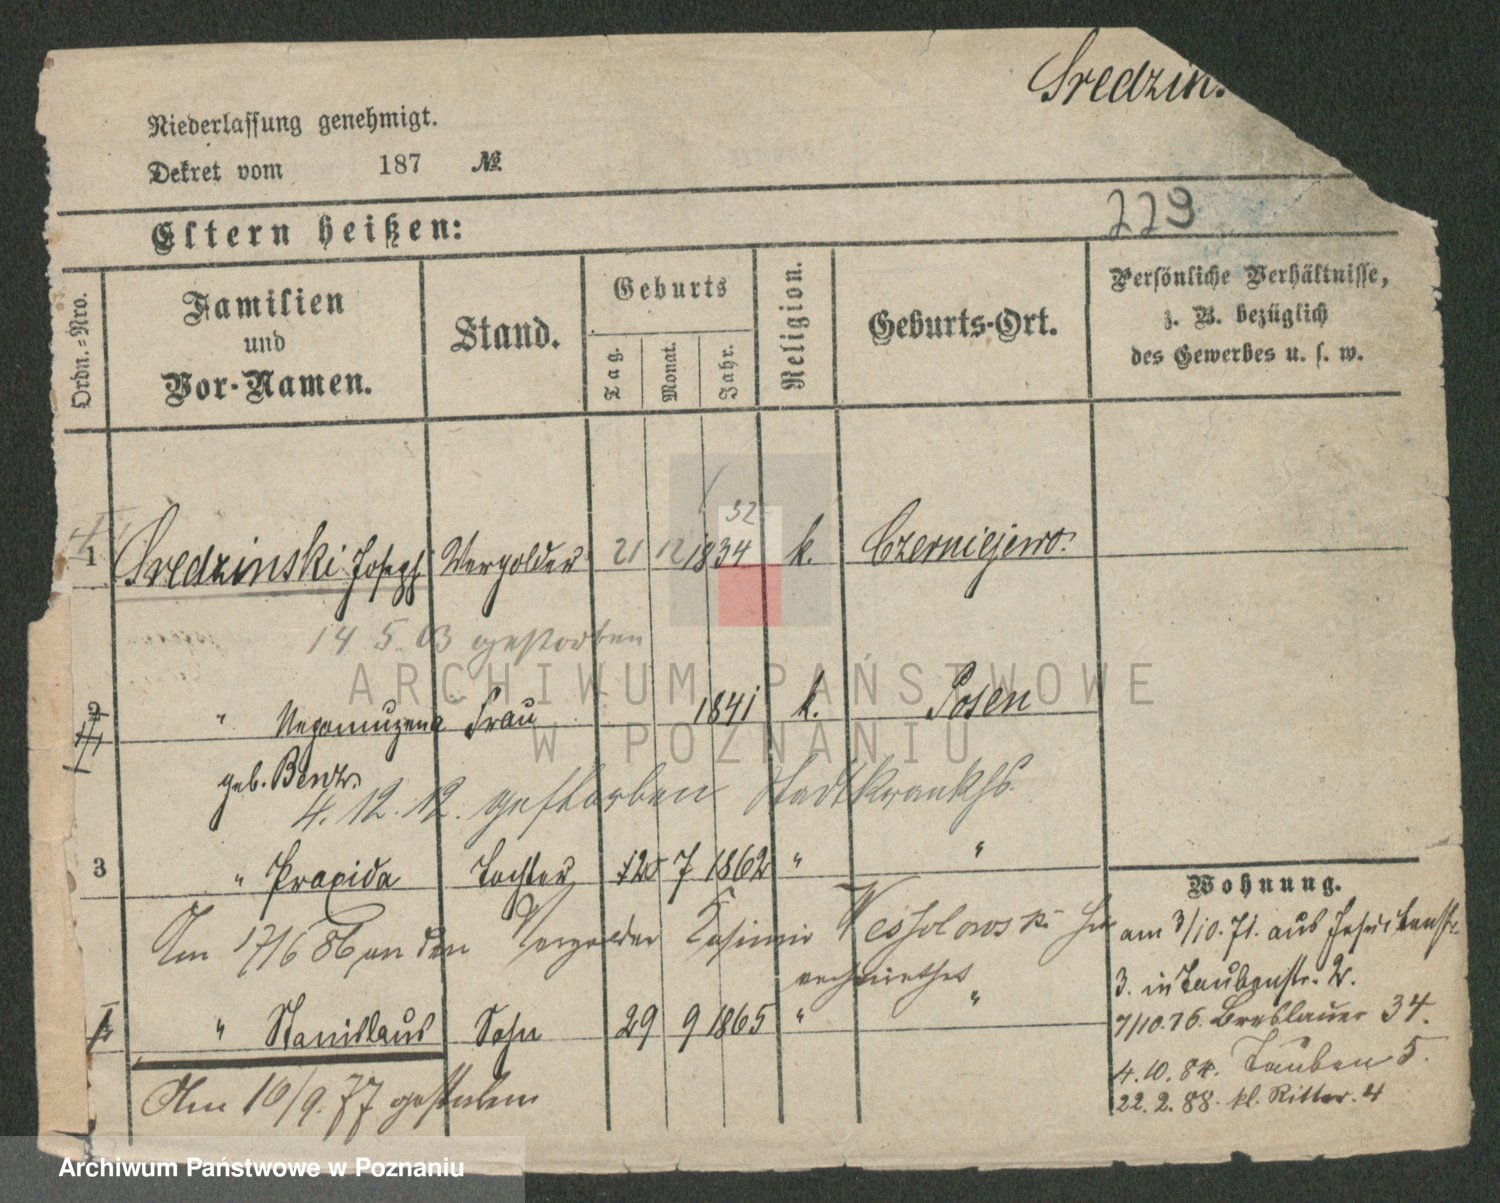 Sredzin
Niederlassung genehmigt.
Dekret vom 187 №
229
Eltern heißen:
Ordn.-Nro.
Familien
und
Vor-Namen.
Stand.
Geburts
Tag.
Monat.
Jahr.
Religion.
Geburts-Ort.
Persönliche Verhältnisse,
z. B. bezüglich
des Gewerbes u. s. w.
32
1 Sredzinski Joseph Vergolder 21 12 1834 k. Czerniejewo.
14 5. 03 gestorben
2 " Nepomuzena Frau 1841 k. Posen
geb. Bentz
4. 12. 12. gestorben Stadtkrankhs.
3 " Praxida Tochter 20 7 1862 " "
Am 17/6 86 an den Vergolder Kasimir Wessolowski
verheirathet
" Stanislaus Sohn 29 9 1865 " "
Am 10/9. 77 gestorben
Wohnung.
am 3/10. 71. aus Jesuitenstr.
3. in Taubenstr. 2.
7/10. 76. Breslauer 34.
4. 10. 84. Tauben 5.
22. 2. 88. kl. Ritter. 4
ARCHIWUM PAŃSTWOWE
W POZNANIU
Archiwum Państwowe w Poznaniu